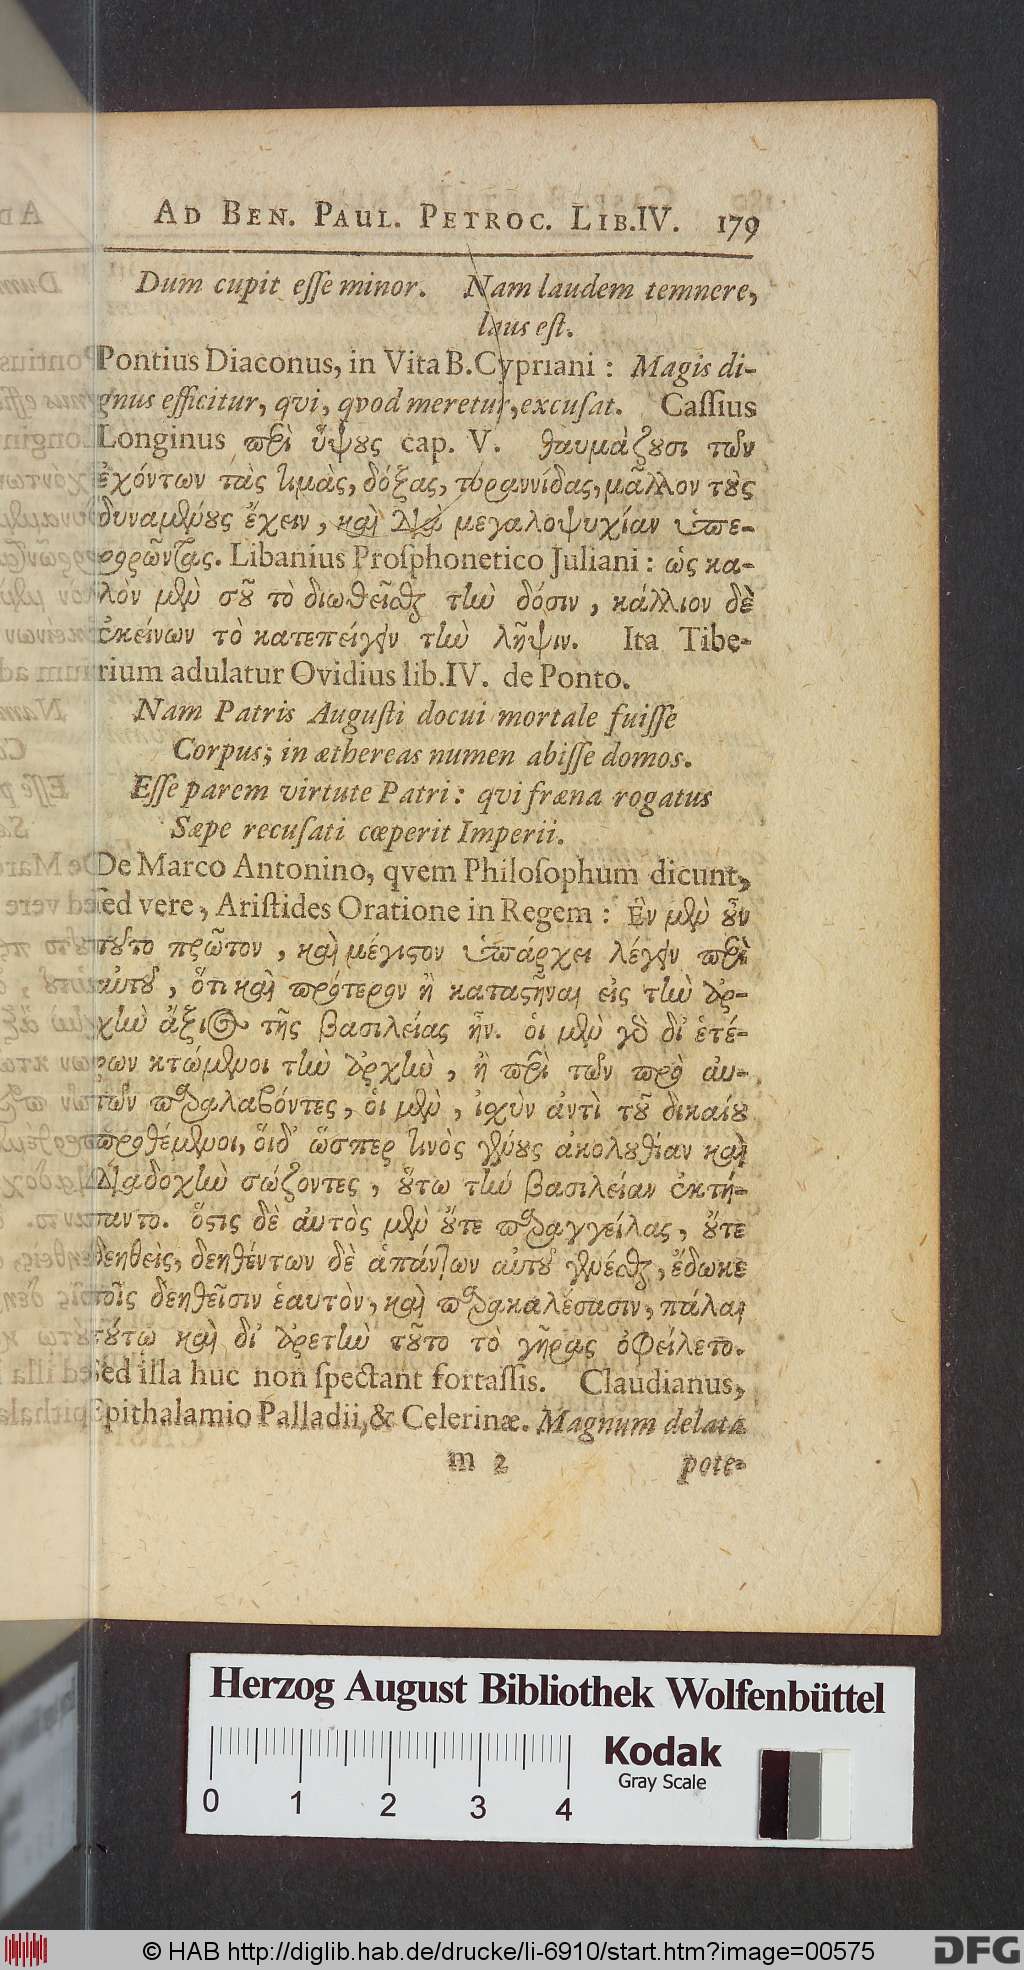 AD BEN. PAUL. PETROC. LIB.IV. 179
Dum cupit eſſe minor. Nam laudem temnere,
laus eſt.
Pontius Diaconus, in Vita B.Cypriani : Magis di-
gnus efficitur, qvi, qvod meretur, excuſat. Caſſius
Longinus περὶ ὕψους cap. V. θαυμάζουσι τῶν
ἐχόντων τὰς τιμὰς, δόξας, τυραννίδας, μᾶλλον τοὺς
δυναμένους ἔχειν, καὶ διὰ μεγαλοψυχίαν ὑπε-
ρορῶντας. Libanius Proſphonetico Juliani : ὡς κα-
λὸν μὲν σοῦ τὸ διωθεῖσθαι τὴν δόσιν, κάλλιον δὲ
ἐκείνων τὸ κατεπείγειν τὴν λῆψιν. Ita Tibe-
rium adulatur Ovidius lib.IV. de Ponto.
Nam Patris Auguſti docui mortale fuiſſe
Corpus; in æthereas numen abiſſe domos.
Eſſe parem virtute Patri: qui fræna rogatus
Sæpe recuſati cœperit Imperii.
De Marco Antonino, qvem Philoſophum dicunt,
ſed vere, Ariſtides Oratione in Regem : Ἓν μὲν οὖν
τοῦτο πρῶτον, καὶ μέγιστον ὑπάρχει λέγειν περὶ
αὐτοῦ, ὅτι καὶ πρότερον ἢ καταστῆναι εἰς τὴν ἀρ-
χὴν ἄξιος τῆς βασιλείας ἦν. οἱ μὲν γὰρ δι' ἑτέ-
ρων κτώμενοι τὴν ἀρχὴν, ἢ περὶ τῶν πρὸ αὐ-
τῶν παραλαβόντες, οἱ μὲν, ἰσχὺν ἀντὶ τοῦ δικαίου
προθέμενοι, οἵδ' ὥσπερ τινὸς γένους ἀκολουθίαν καὶ
διαδοχὴν σώζοντες, οὕτω τὴν βασιλείαν ἐκτή-
σαντο. ὅστις δὲ αὐτὸς μὲν οὔτε παραγγείλας, οὔτε
δεηθεὶς, δεηθέντων δὲ ἁπάντων αὐτοῦ γενέσθαι, ἔδωκε
τοῖς δεηθεῖσιν ἑαυτὸν, καὶ παρακαλέσασιν, πάλαι
τούτῳ καὶ δι' ἀρετὴν τοῦτο τὸ γῆρας ὀφείλετο.
Sed illa huc non ſpectant fortaſſis. Claudianus,
Epithalamio Palladii, & Celerinæ. Magnum delata
m 2 pote-
Herzog August Bibliothek Wolfenbüttel
Kodak
Gray Scale
0 1 2 3 4
© HAB http://diglib.hab.de/drucke/li-6910/start.htm?image=00575
DFG